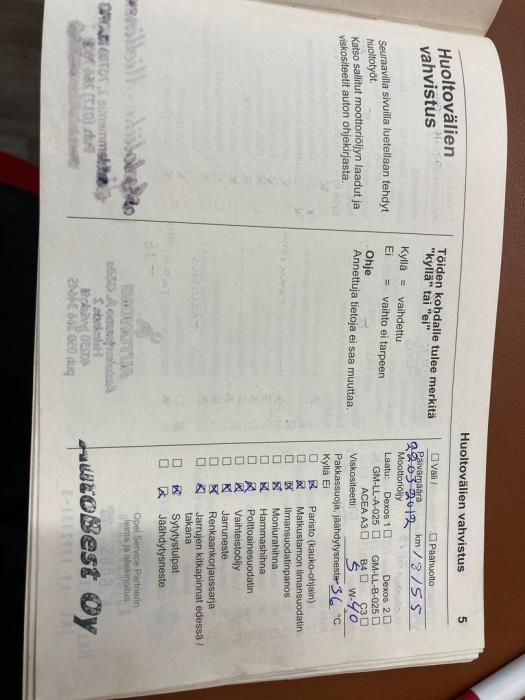 Huoltovälien vahvistus 5
Huoltovälien
vahvistus
Seuraavilla sivuilla luetellaan tehdyt
huoltotyöt.
Katso sallitut moottoriöljyn laadut ja
viskositeetit auton ohjekirjasta.
Töiden kohdalle tulee merkitä
"kyllä" tai "ei"
Kyllä = vaihdettu
Ei = vaihto ei tarpeen
Ohje
Annettuja tietoja ei saa muuttaa.
Väli / Päähuolto
Päivämäärä km
Moottoriöljy
Laatu: Dexos 1 Dexos 2
GM-LL-A-025 GM-LL-B-025
ACEA A3 B4 C3
Viskositeetti: 5 W-40
Pakkassuoja, jäähdytysneste -36 °C
Kyllä Ei
Paristo (kauko-ohjain)
Matkustamon ilmansuodatin
Ilmansuodatinpanos
Moniurahihna
Hammashihna
Polttoainesuodatin
Vaihteistoöljy
Jarruneste
Renkaankorjaussarja
Jarrujen kitkapinnat edessä /
takana
Sytytystulpat
Jäähdytysneste
Opel Service Partnerin
leima ja allekirjoitus
AutoBest Oy